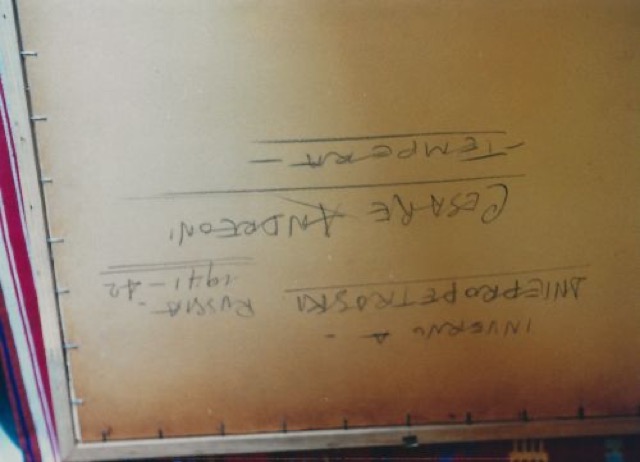 INVERNO A -
DNIEPROPETROSKI
RUSSIA -
1941-42
CESARE ANDREONI
- TEMPERA -